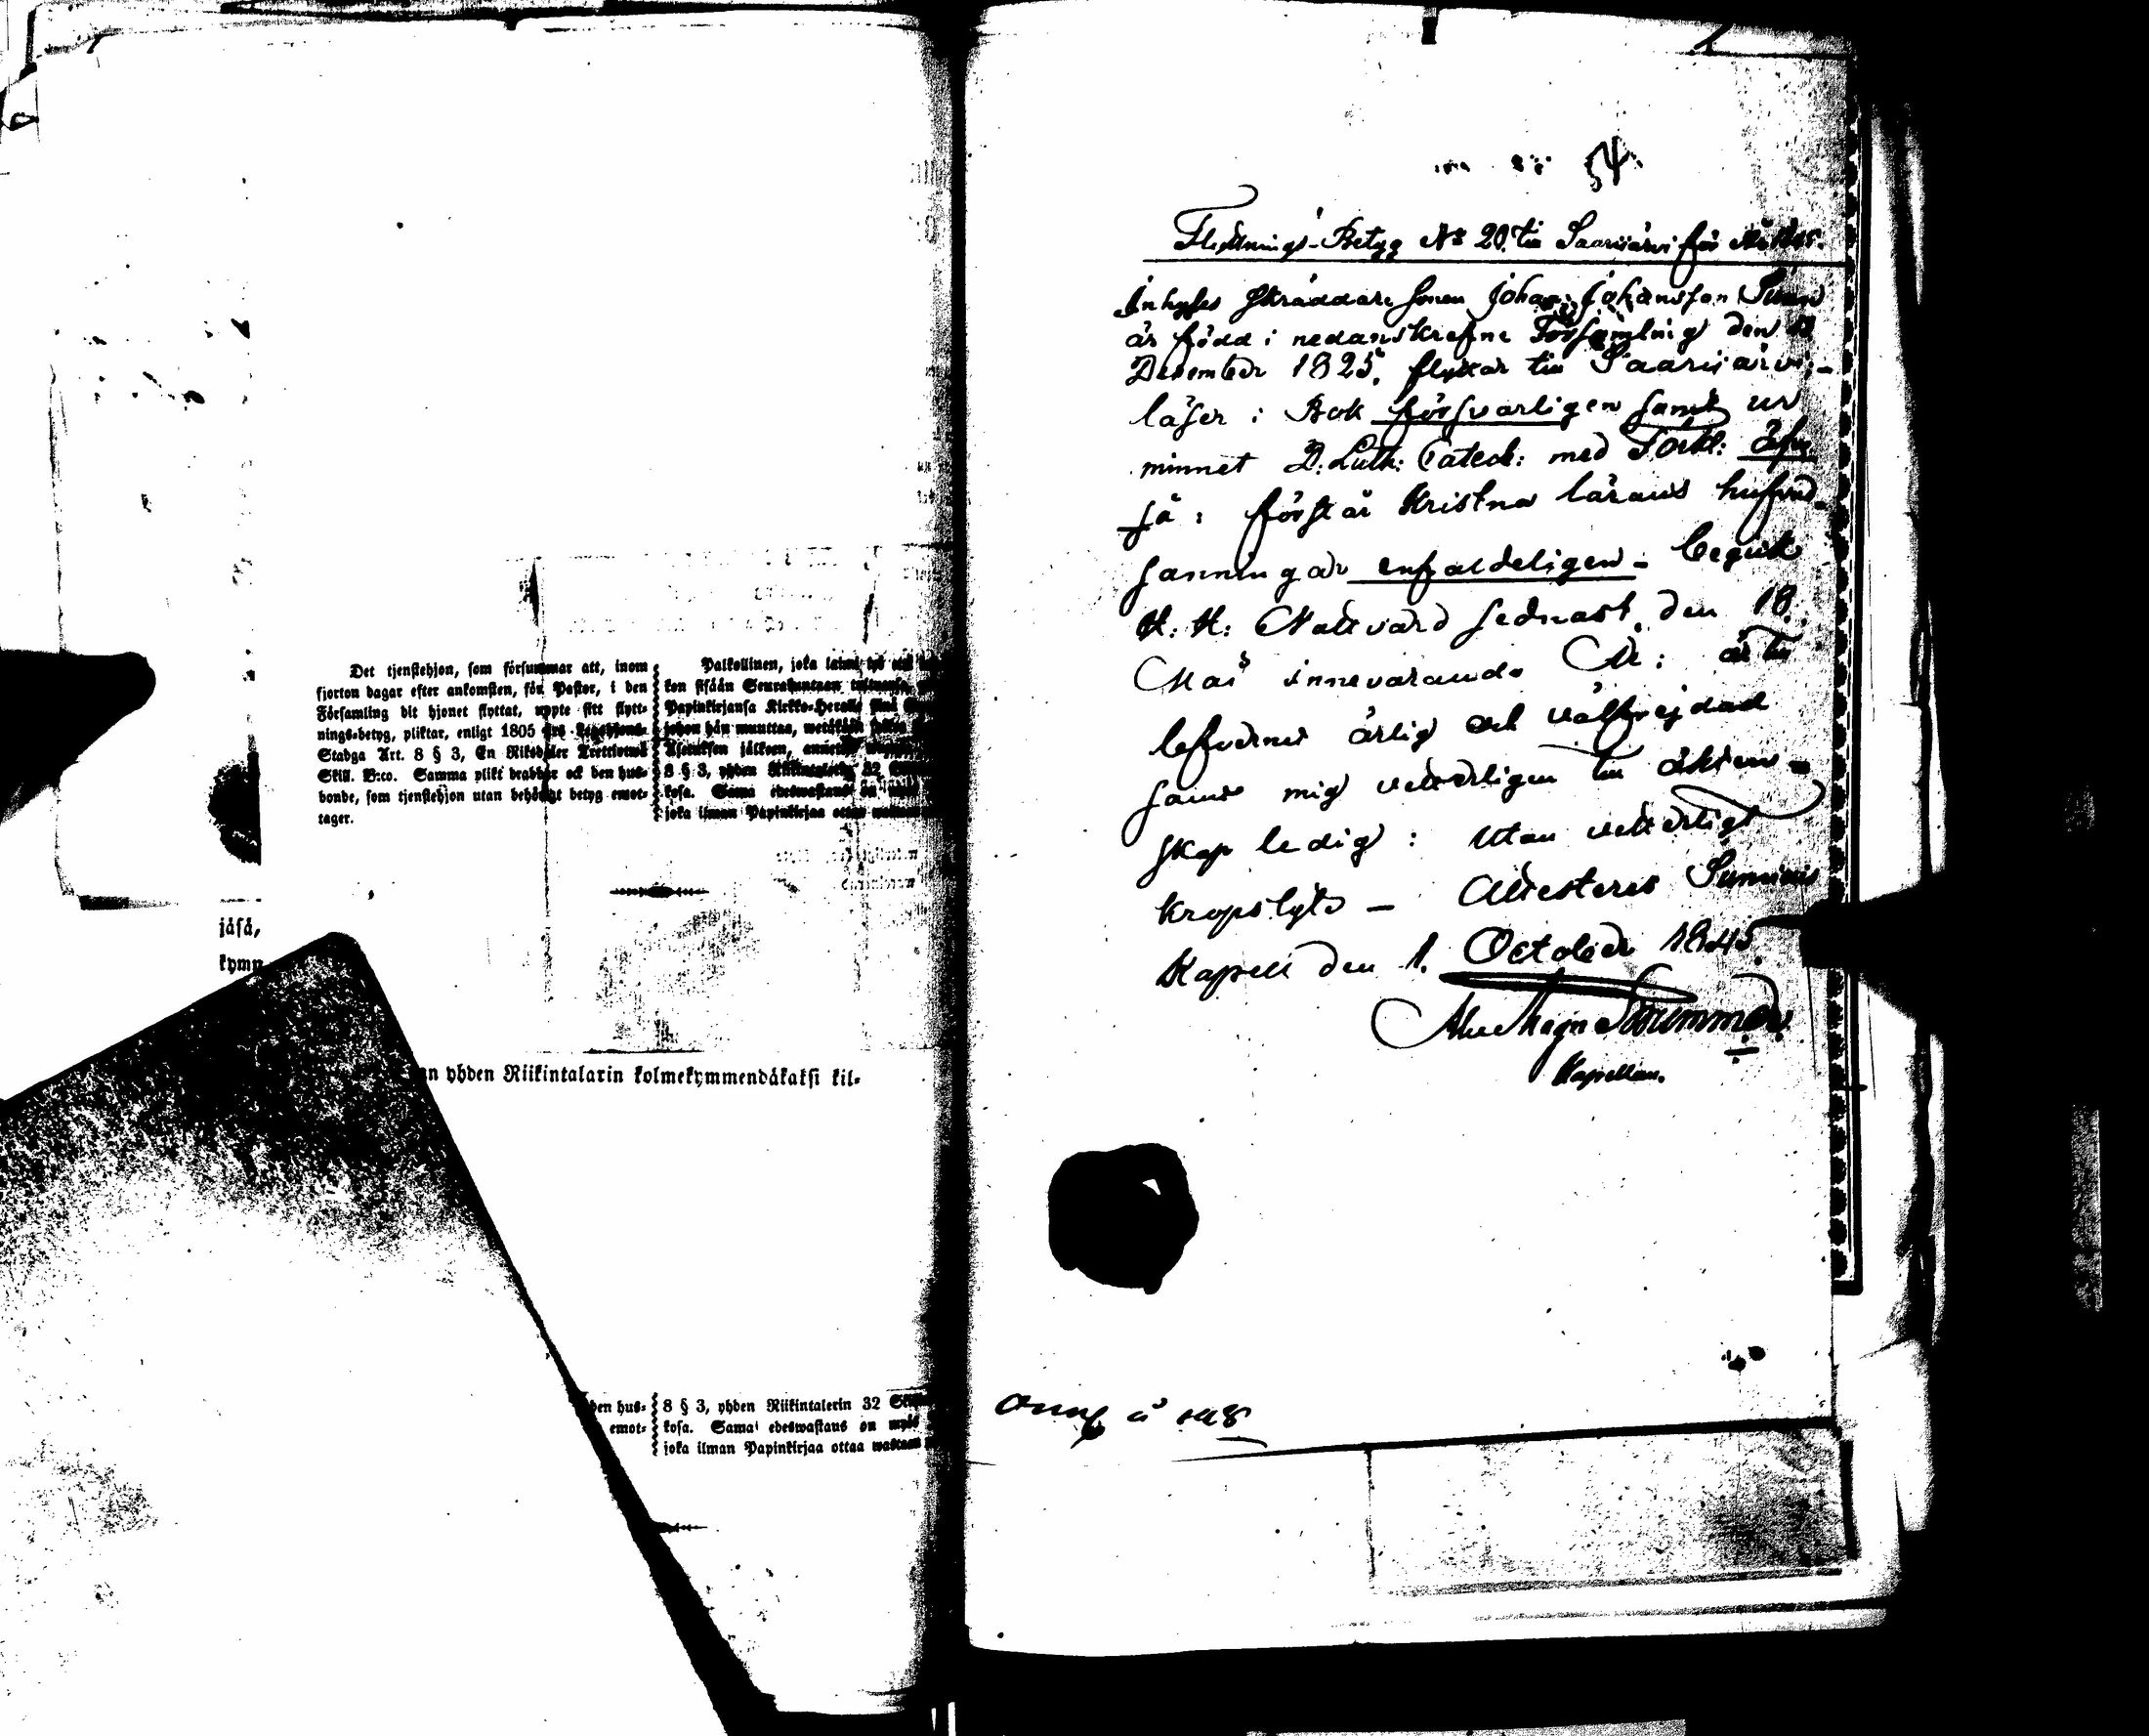 Det tjenstehjon, som försummar att, inom
fjorton dagar efter ankomsten, för Pastor, i den
Församling dit hjonet flyttat, uppte sitt flytt-
nings-betyg, pliktar, enligt 1805 års Legohjons-
Stadga Art. 8 § 3, En Riksdaler Trettiotwå
Skill. B:co. Samma plikt drabbar ock den hus-
bonde, som tjenstehjon utan behörigt betyg emot-
tager.
Palkollinen, joka
kon sisään Seurakuntaan
Papinkirjansa Kirkko-Herralle
johon hän muuttaa,
Asetuksen jälkeen,
8 § 3, yhden Riikintalerin 32
kosa. Sama edeswastaus on
joka ilman Papinkirjaa ottaa
jäsä,
kymm
an yhden Riikintalarin kolmekymmendäkaksi kil-
den hus-
emot-
8 § 3, yhden Riikintalerin 32
kosa. Sama edeswastaus on myös
joka ilman Papinkirjaa ottaa wastaan
54
Flyttnings-Betyg No 20. till Saarijärvi för
Inhyses Skräddare Sonen Johan Johansson
är född i nedanskrefne Församling den
December 1825, flyttar till Saarijärvi -
läser i Bok försvarligen samt ur
minnet D: Luth: Catech: med Förkl: äfven
så: förstår Kristna lärans hufvud-
sanningar enfaldeligen - begick
H. H. Nattvard sednast den 18
Maji innevarande År: är till
lefvernet ärlig och välfrejdad
samt mig vetterligen till äkten-
skap ledig: utan vetterligt
kropslyte - Attesteras Sumiais
Kapell den 1. October 1845
Kapellan.